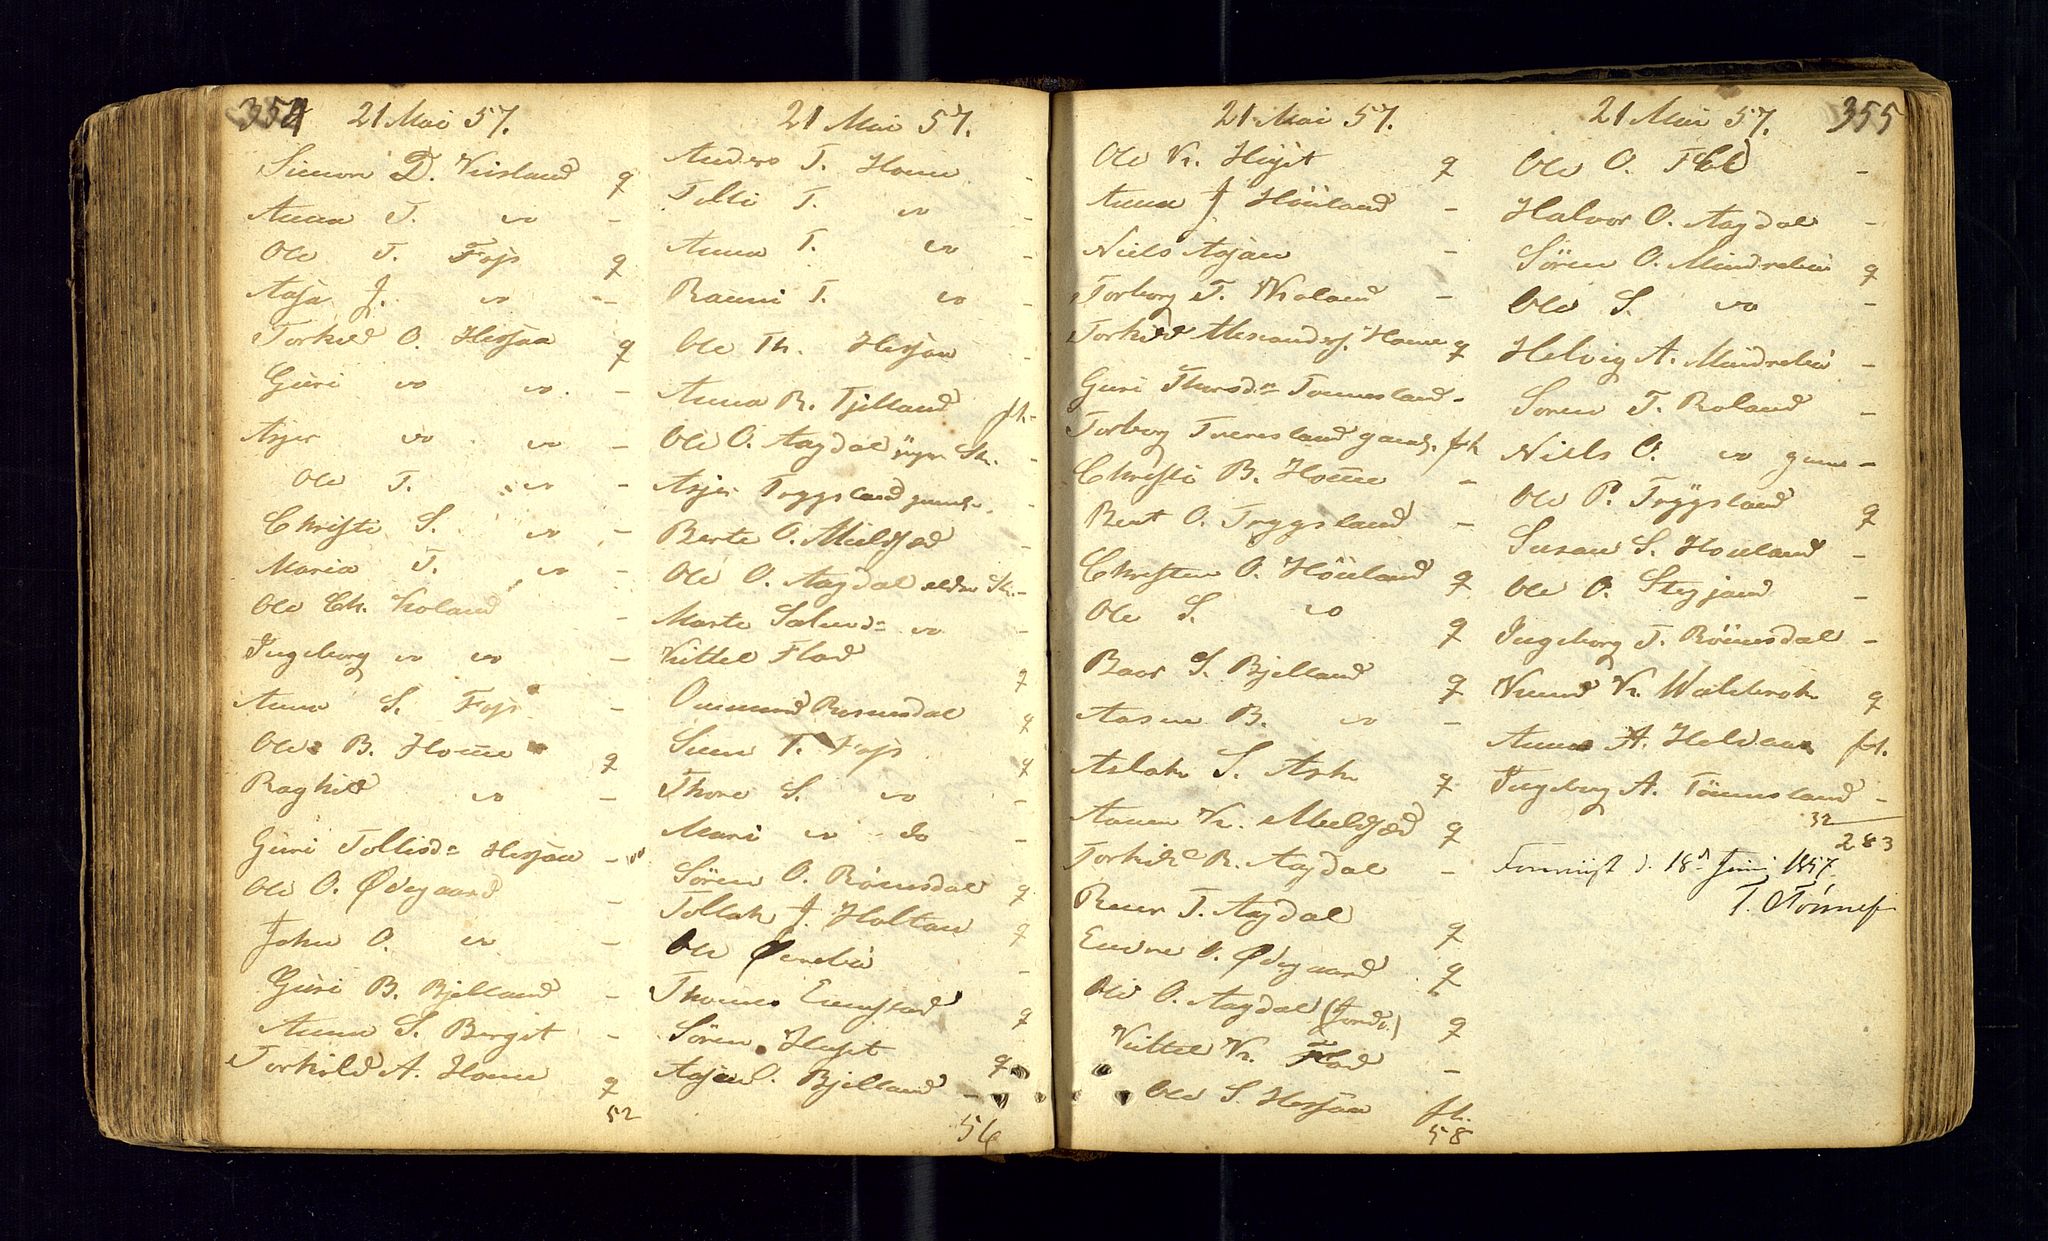 354 21 Mai 57.
Simon D. Viisland q
Anna T. do -
Ole T. Fojs q
Aasa J. do -
Torkild O. Hesjaa q
Guri do do. -
Asjer do do -
Ole T. do -
Christi S. do -
Maria T. do -
Ole Ch. Koland -
Ingeborg do do -
Anna S. Fojs -
Ole B. Home q
Raghild do -
Guri Tollisd= Hesjaa -
Ole O. Ødegaard -
John O. do -
Guri B. Bjelland -
Anna S. Bergit -
Torkild A. Home q
52
21 Mai 57.
Anders T. Home -
Tolli T. do -
Anna T. do -
Ranni T. do -
Ole Th. Hesjaa -
Anna R. Fjelland fh-
Ole O. Aagdal yngr Sk. -
Asjer Trygsland -
Berte O. Mieldfød -
Ole O. Aagdal elder Sk.-
Marte Salmd= do -
Kittel Flad q
Ommund Rosnesdal q
Sven T. Fojs q
Thore S. do -
Mari do do -
Søren O. Rømsdal q
Tollak J. Holtan q
Ole Øvrebø -
Thomas Lunstad q
Søren Hujst q
Aasa S. Bjelland -
56
21 Mai 57.
Ole K. Hujst q
Anna J. Høiland -
Niels Asjaa -
Torborg T. Roland -
Torkild Alexanders. Home q
Guri Thorsd= Tonnesland -
Torborg Tonnesland gaml. fh
Christi B. Home -
Bent O. Trygsland -
Christen O. Høiland q
Ole S. do q
Baar S. Bjelland q
Aasne B. do -
Aslak S. Ask q
Aanen K. Mieldfød q
Torkild R. Aagdal -
Reier T. Aagdal q
Endre O. Ødegaard q
Ole O. Aagdal q
Kittel K. Flad -
Ole S. Hesjaa fh.
58
21 Mai 57. 355
Ole O. Flad -
Halvor O. Aagdal -
Søren O. Mindrebø q
Ole S. do -
Helvig A. Mindrebø -
Søren T. Roland -
Niels O. do -
Ole P. Trygsland q
Susan S. Houland -
Ole O. Stegjand -
Ingeborg T. Rømsdal -
Knud K. Walebrok q
Anna A. Heldaas fh.
Ingeborg A. Tønnesland -
32
283
18d Juni 1857.
T. O Tønnes